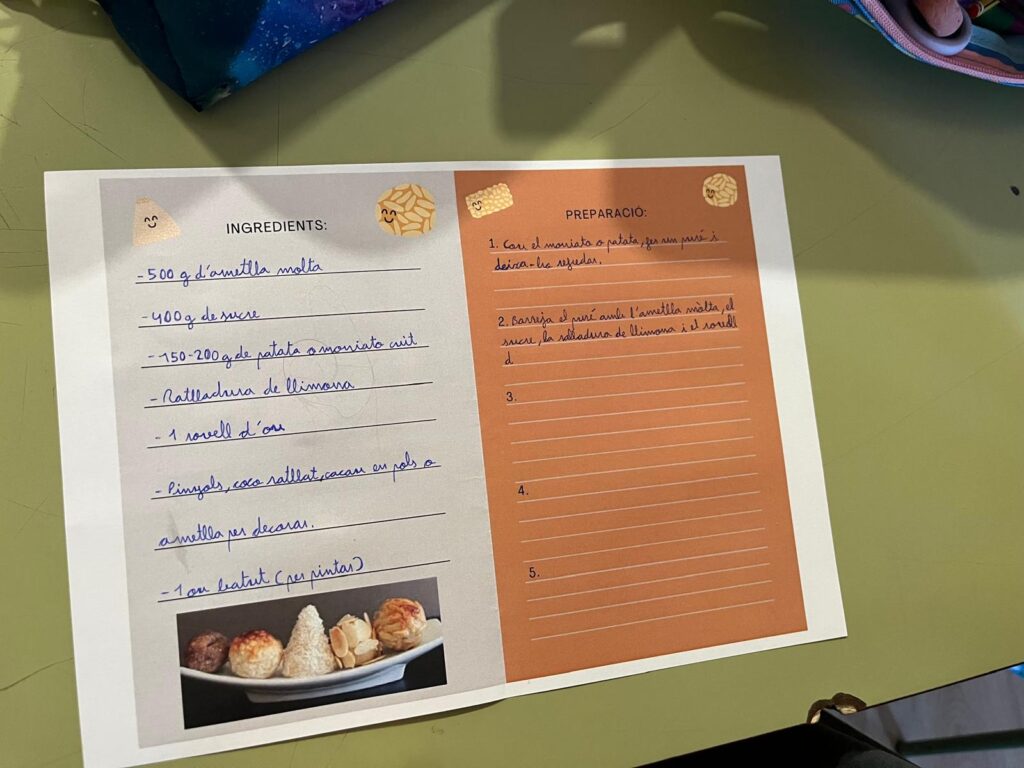 INGREDIENTS:
- 500 g d'ametlla molta
- 400 g de sucre
- 150-200 g de patata o moniato cuit
- Ratlladura de llimona
- 1 rovell d'ou
- Pinyols, coco ratllat, cacau en pols o
ametlla per decorar.
- 1 ou batut (per pintar)
PREPARACIÓ:
1. Cou el moniato o patata, fes un puré i
deixa-ho refredar.
2. Barreja el puré amb l'ametlla mòlta, el
sucre, la ralladura de llimona i el rovell
d
3.
4.
5.